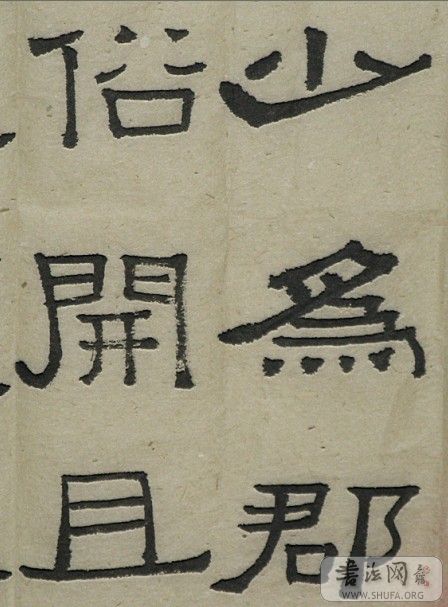 少爲郡
俗開且
書法网
WWW.SHUFA.ORG